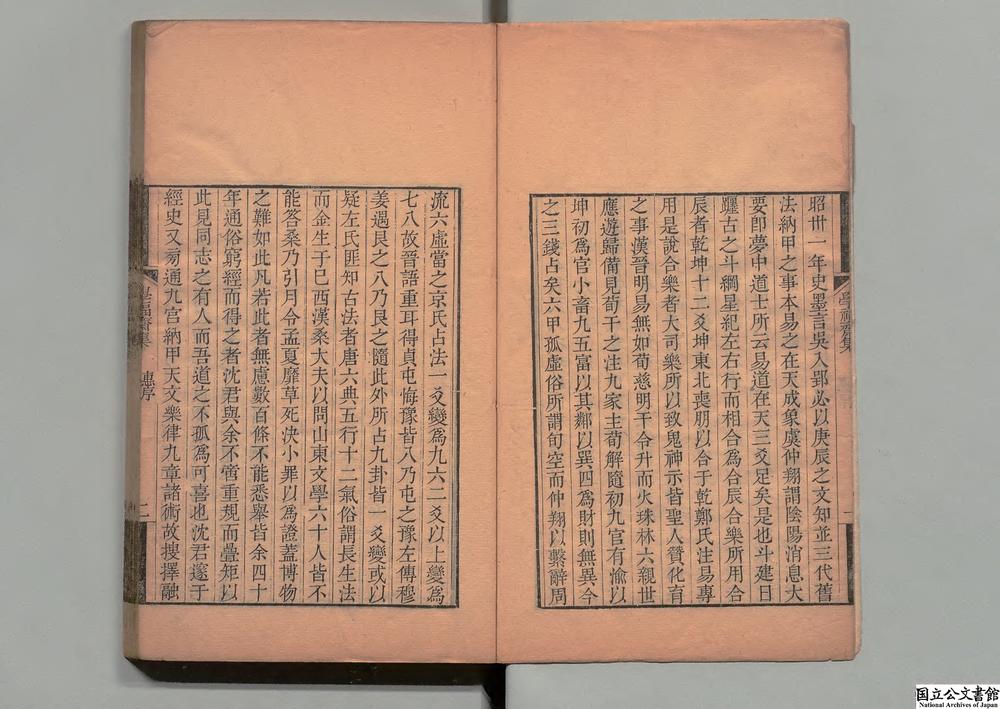 學福齋集
昭卅一年史墨言吳入郢必以庚辰之文知並三代舊
法納甲之事本易之在天成象虞仲翔謂陰陽消息大
要卽夢中道士所云易道在天三爻足矣是也斗建日
躔古之斗綱星紀左右行而相合爲合辰合樂所用合
辰者乾坤十二爻坤東北喪朋以合于乾鄭氏注易專
用是說合樂者大司樂所以致鬼神示皆聖人贊化育
之事漢晉明易無如荀慈明干令升而火珠林六親世
應遊歸備見荀干之注九家主荀解隨初九官有渝以
坤初爲官小畜九五富以其鄰以巽四爲財則無異今
之三錢占矣六甲孤虛俗所謂旬空而仲翔以繫辭周
流六虛當之京氏占法一爻變爲九六二爻以上變爲
七八故晉語重耳得貞屯悔豫皆八乃屯之豫左傳穆
姜遇艮之八乃艮之隨此外所占九卦皆一爻變或以
疑左氏匪知古法者唐六典五行十二氣俗謂長生法
而金生于巳西漢桑大夫以問山東文學六十人皆不
能答桑乃引月令孟夏靡草死決小罪以爲證蓋博物
之難如此凡若此者無慮數百條不能悉舉皆余四十
年通俗窮經而得之者沈君與余不啻重規而疊矩以
此見同志之有人而吾道之不孤爲可喜也沈君邃于
經史又旁通九宮納甲天文樂律九章諸術故搜擇融
學福齋集 惠序 二
国立公文書館
National Archives of Japan